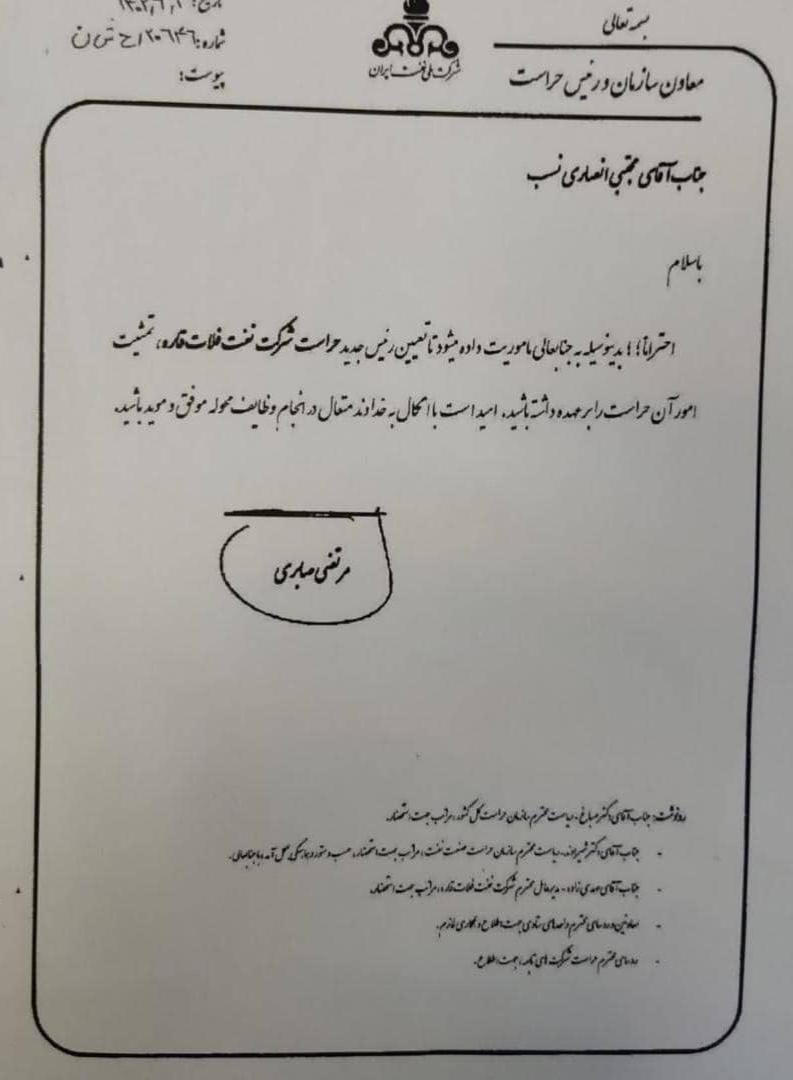 بسمه تعالی
معاون سازمان و رئیس حراست
شرکت ملی نفت ایران
تاریخ:
شماره: ۲۰۶۴۶/ح ش ن
پیوست:
جناب آقای مجتبی انصاری نسب
باسلام
احتراماً؛ بدینوسیله به جنابعالی ماموریت داده میشود تا تعیین رئیس جدید حراست شرکت نفت فلات قاره، تمشیت
امور آن حراست را بر عهده داشته باشید. امید است با اتکال به خداوند متعال در انجام وظایف محوله موفق و موید باشید.
مرتضی صابری
رونوشت: جناب آقای دکتر صباغ - ریاست محترم سازمان حراست کل کشور، مراتب جهت استحضار.
- جناب آقای دکتر شیروند، ریاست محترم سازمان حراست صنعت نفت، مراتب جهت استحضار، حسب دستور و هماهنگی بعمل آمده با جنابعالی.
- جناب آقای مهدی زاده - مدیرعامل محترم شرکت نفت فلات قاره، مراتب جهت استحضار.
- معاونین و روسای محترم واحدهای ستادی جهت اطلاع و همکاری لازم.
- روسای محترم حراست شرکت های تابعه، جهت اطلاع.